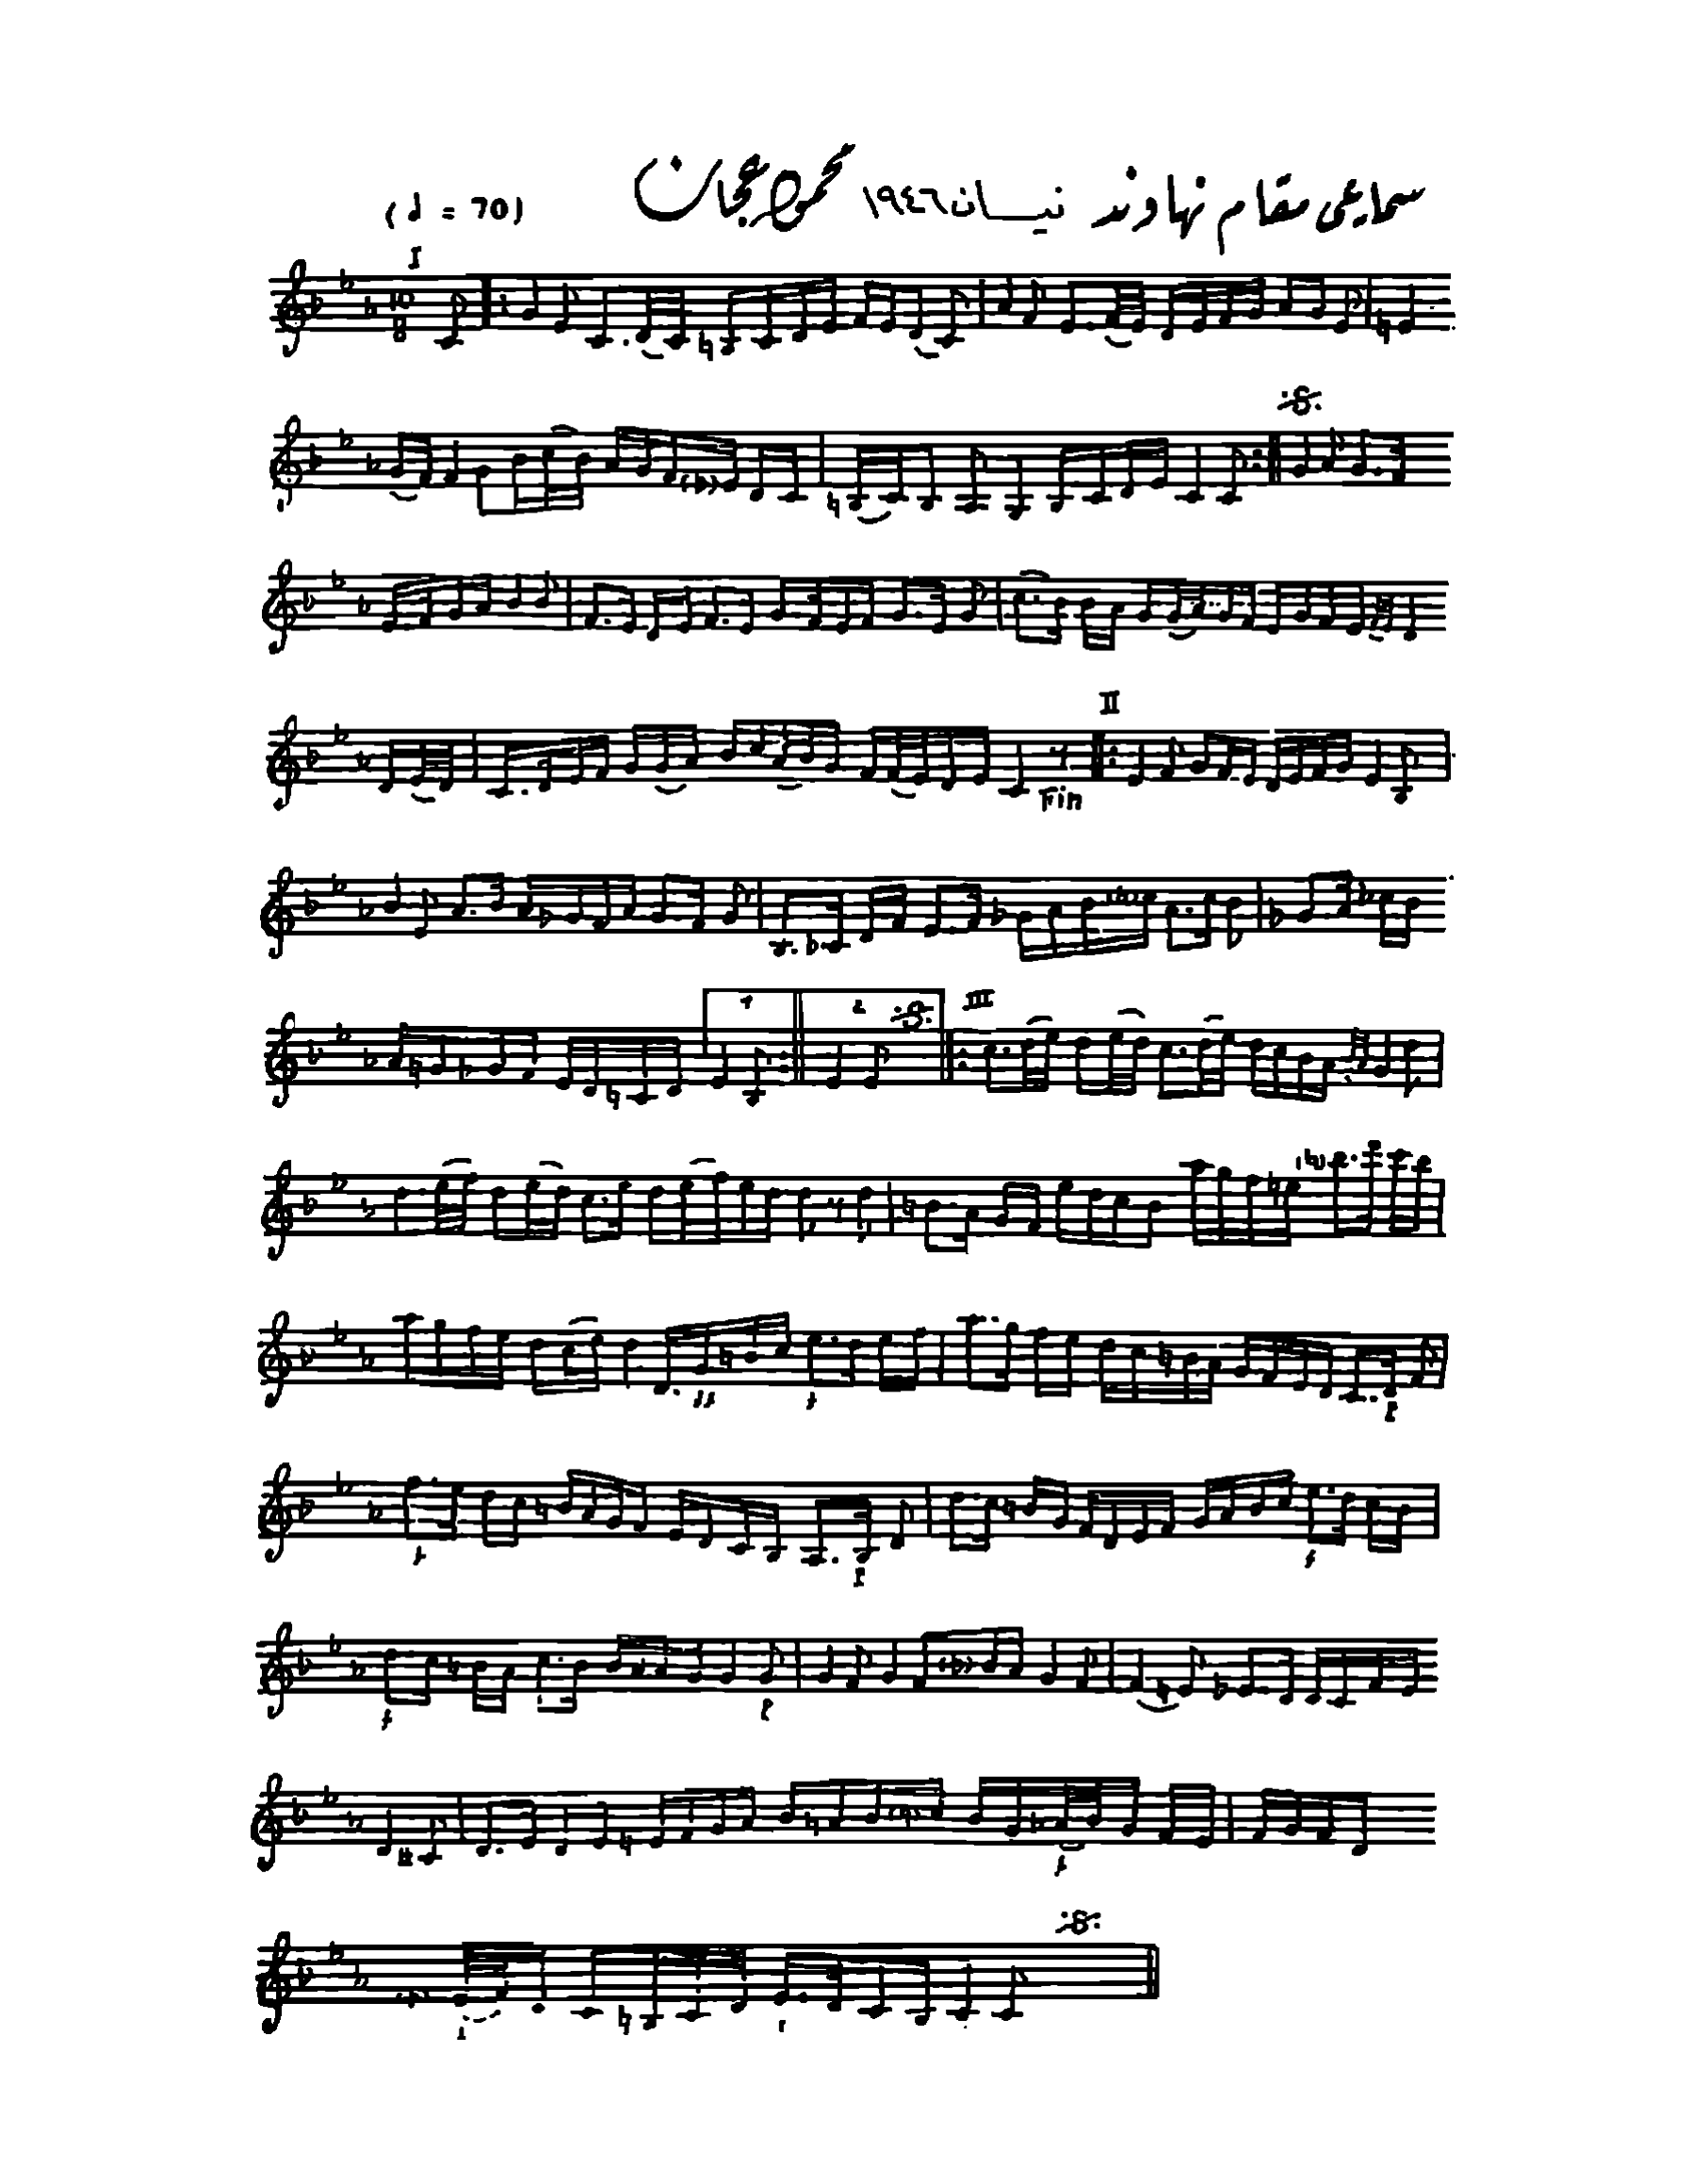 سماعي مقام نهاوند نيسان ١٩٤٦ محمود عجان
(♩ = 70)
I
10
8
II
Fin
1 2 III